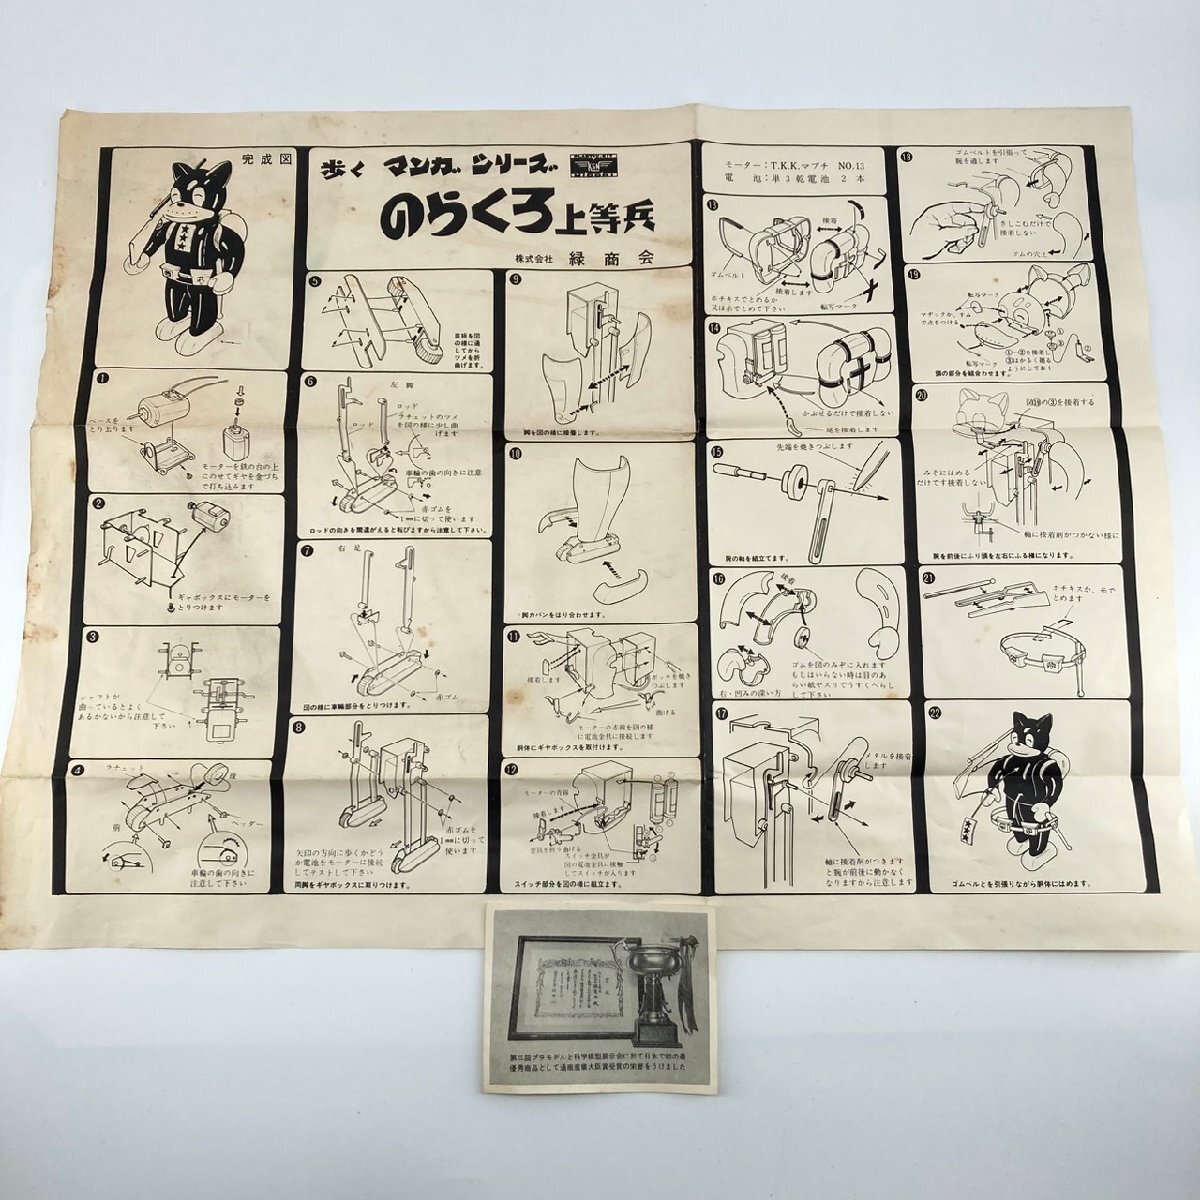 完成図
歩く マンガ シリーズ
のらくろ上等兵
株式会社 緑商会
モーター:T.K.K.マブチ NO.13
電池:単3乾電池 2本
1
ベースを
とり去ります
モーターを鉄の台の上
にのせてギヤを金づち
で打ち込みます
2
ギャボックスにモーターを
とりつけます
3
シャフトが
曲っているとよく
あるかないから注意して
下さい
4
ラチェット
前
後
ヘッダー
車輪の歯の向きに
注意して下さい
5
車輪を図
の様に通
してから
ツメを折
曲げます。
6
左脚
ロッド
ラチェットのツメ
を図の様に少し曲
げます
ロッド
車輪の歯の向きに注意
赤ゴムを
1mmに切って使います
ロッドの向きを間違がえると転びますから注意して下さい。
7
右足
赤ゴム
図の様に車輪部分をとりつけます。
8
赤ゴムを
1mmに切って
使います
矢印の方向に歩くかどう
か電池をモーターに接続
してテストして下さい
両脚をギヤボックスに取りつけます。
9
脚を図の様に接着します。
10
脚カバンをはり合わせます。
11
接着します
ポッチを焼き
つぶします
曲げる
モーターの赤線を図の様
に電池金具に接続します
胴体にギヤボックスを取付けます。
12
モーターの青線
接着します
スイッチ金具が
図の電池金具に接触
してスイッチが入ります
スイッチ部分を図の様に組立ます。
13
接着
ゴムベルト
接着します
ホチキスでとめるか
又は糸でとめて下さい
転写マーク
14
かぶせるだけで接着しない
尾を接着します
15
先端を焼きつぶします
腕の軸を組立てます。
16
接着
ゴムを図のみぞに入れます
もしはいらない時は目のあ
らい紙ヤスリでうすくへらし
して下さい
右・凹みの深い方
17
メタルを接着
します
軸に接着剤がつきます
と腕が前後に動かなく
なりますから注意します
18
ゴムベルトを引張って
腕を通します
さしこむだけで
接着しない
ゴムの穴と
19
転写マーク
マヂックか、すみ
で点をつける
転写マーク
①―②を接着し
③はかるく廻る
ようにしておく
頭の部分を組合わせます。
20
図19の③を接着する
みぞにはめる
だけです接着しない
軸に接着剤がつかない様に
腕を前後にふり頭を左右にふる様になります。
21
ホチキスか、糸で
とめます
22
ゴムベルとを引張りながら胴体にはめます。
第三回プラモデルと科学模型展示会に於て日本で初の最
優秀商品として通商産業大臣賞受賞の栄誉をうけました